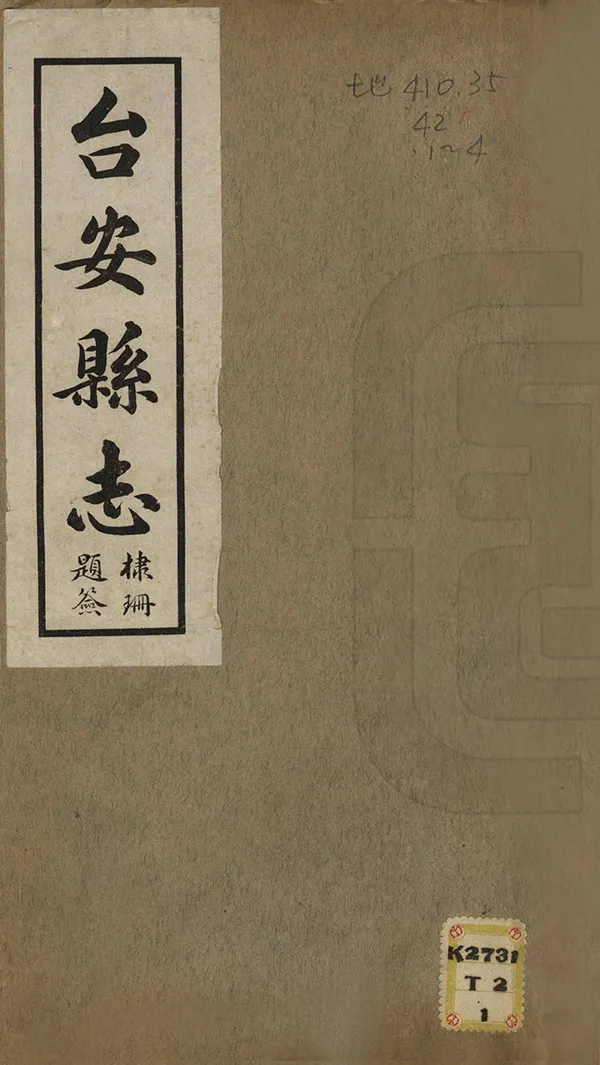 台安縣志
棣珊
題簽
地 410.35
42
1~4
K2731
T 2
1